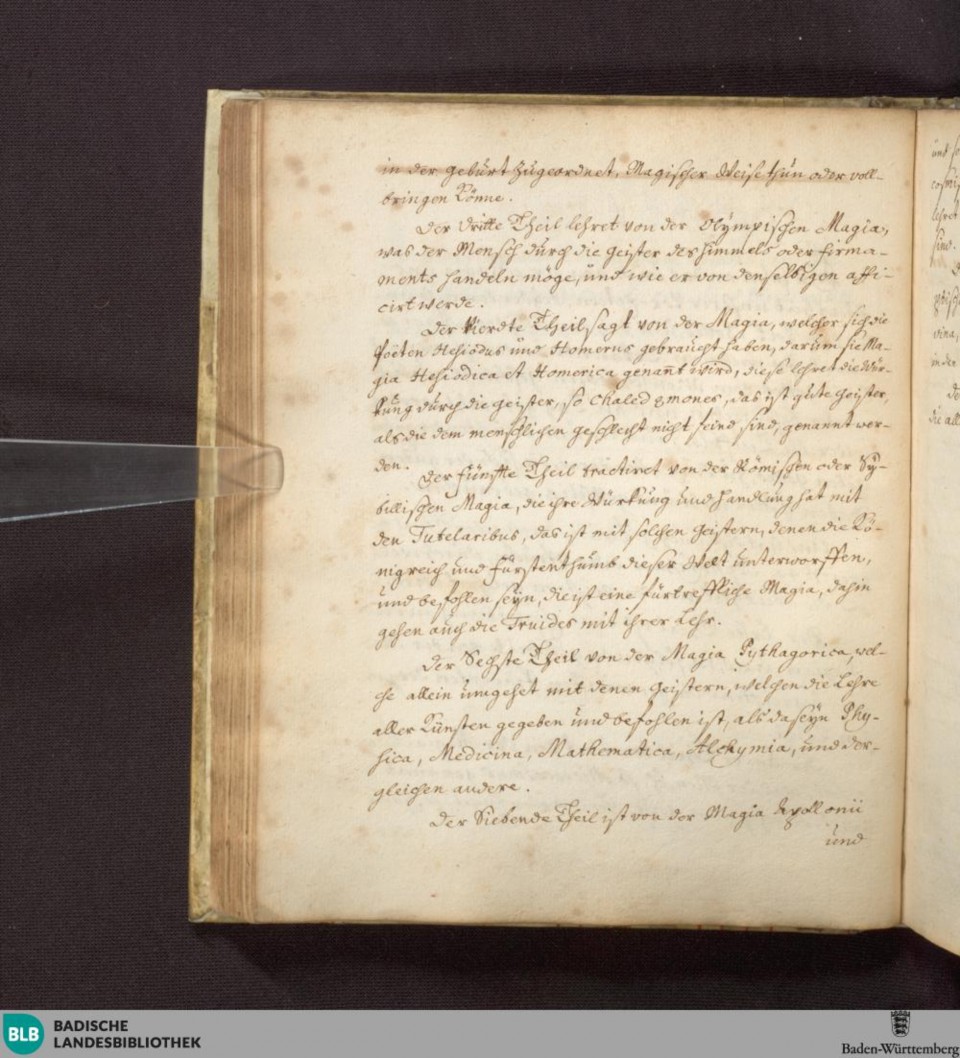 in der geburt zugeordnet, Magischer Weise thun oder voll-
bringen könne.
Der dritte Theil lehret von der Olympischen Magia,
was der Mensch durch die geister des himmels oder firma-
ments handeln möge, und wie er von denselbigen affi-
cirt werde.
Der Vierdte Theil, sagt von der Magia, welcher sich die
Poëten Hesiodus und Homerus gebraucht haben, darum sie Ma-
gia Hesiodica et Homerica genannt wird, diese lehret die Wür-
kung durch die geister, so
das ist gute geister,
als die dem menschlichen geschlecht nicht feind sind, genannt wer-
den.
Der fünffte Theil tractiret von der Römischen oder Sy-
billischen Magia, die ihre Würkung und handlung hat mit
den Tutelaribus, das ist mit solchen geistern, denen die Kö-
nigreich und fürstenthumb dieser Welt unterworffen,
und befohlen seyn, die ist eine fürtreffliche Magia, dahin
gehen auch die Truides mit ihrer Lehr.
Der Sechste Theil von der Magia Pythagorica, wel-
che allein umgehet mit denen geistern, welchen die Lehre
aller Künsten gegeben und befohlen ist, als da seyn Phy-
sica, Medicina, Mathematica, Alchymia, und der-
gleichen andere.
Der Siebende Theil ist von der Magia Apollonii
und
und
in der
die all
BLB
BADISCHE
LANDESBIBLIOTHEK
Baden-Württemberg